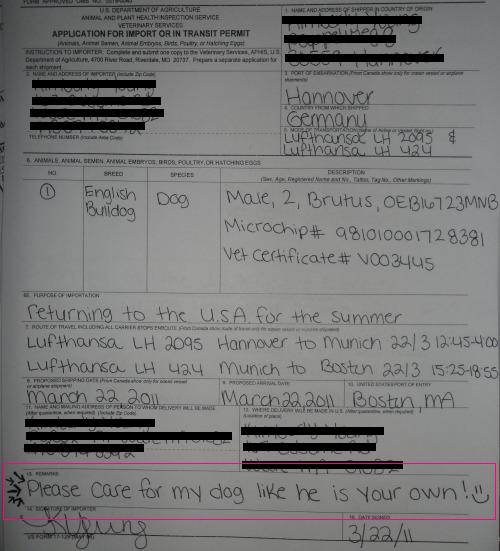 FORM APPROVED OMB NO.
U.S. DEPARTMENT OF AGRICULTURE
ANIMAL AND PLANT HEALTH INSPECTION SERVICE
VETERINARY SERVICES
APPLICATION FOR IMPORT OR IN TRANSIT PERMIT
(Animals, Animal Semen, Animal Embryos, Birds, Poultry, or Hatching Eggs)
INSTRUCTION TO IMPORTER: Complete and submit one copy to the Veterinary Services, APHIS, U.S.
Department of Agriculture, 4700 River Road, Riverdale, MD 20737. Prepare a separate application for
each shipment.
1. NAME AND ADDRESS OF SHIPPER IN COUNTRY OF ORIGIN
2. NAME AND ADDRESS OF IMPORTER (Include Zip Code)
TELEPHONE NUMBER (Include Area Code)
3. PORT OF EMBARKATION (From Canada show only for ocean vessel or airplane
shipments)
Hannover
4. COUNTRY FROM WHICH SHIPPED
Germany
5. MODE OF TRANSPORTATION
Lufthansa LH 2095 &
Lufthansa LH 424
6. ANIMALS, ANIMAL SEMEN, ANIMAL EMBRYOS, BIRDS, POULTRY, OR HATCHING EGGS
NO. BREED SPECIES DESCRIPTION
(Sex, Age, Registered Name and No., Tattoo, Tag No., Other Markings)
1 English Bulldog Dog Male, 2, Brutus, OEB16723MNB
Microchip# 981010001728381
Vet Certificate# V003445
PURPOSE OF IMPORTATION
returning to the U.S.A. for the summer
7. ROUTE OF TRAVEL INCLUDING ALL CARRIER STOPS ENROUTE
Lufthansa LH 2095 Hannover to Munich 22/3 12:45-4:00
Lufthansa LH 424 Munich to Boston 22/3 15:25-18:55
8. PROPOSED SHIPPING DATE (From Canada show only for ocean vessel
or airplane shipment)
March 22 2011
9. PROPOSED ARRIVAL DATE
March 22, 2011
10. UNITED STATES PORT OF ENTRY
Boston, MA
11. NAME AND MAILING ADDRESS OF PERSON TO WHOM DELIVERY WILL BE MADE
12. WHERE DELIVERY WILL BE MADE IN U.S.
13. REMARKS
Please care for my dog like he is your own!
14. SIGNATURE OF IMPORTER
KYoung
15. DATE SIGNED
3/22/11